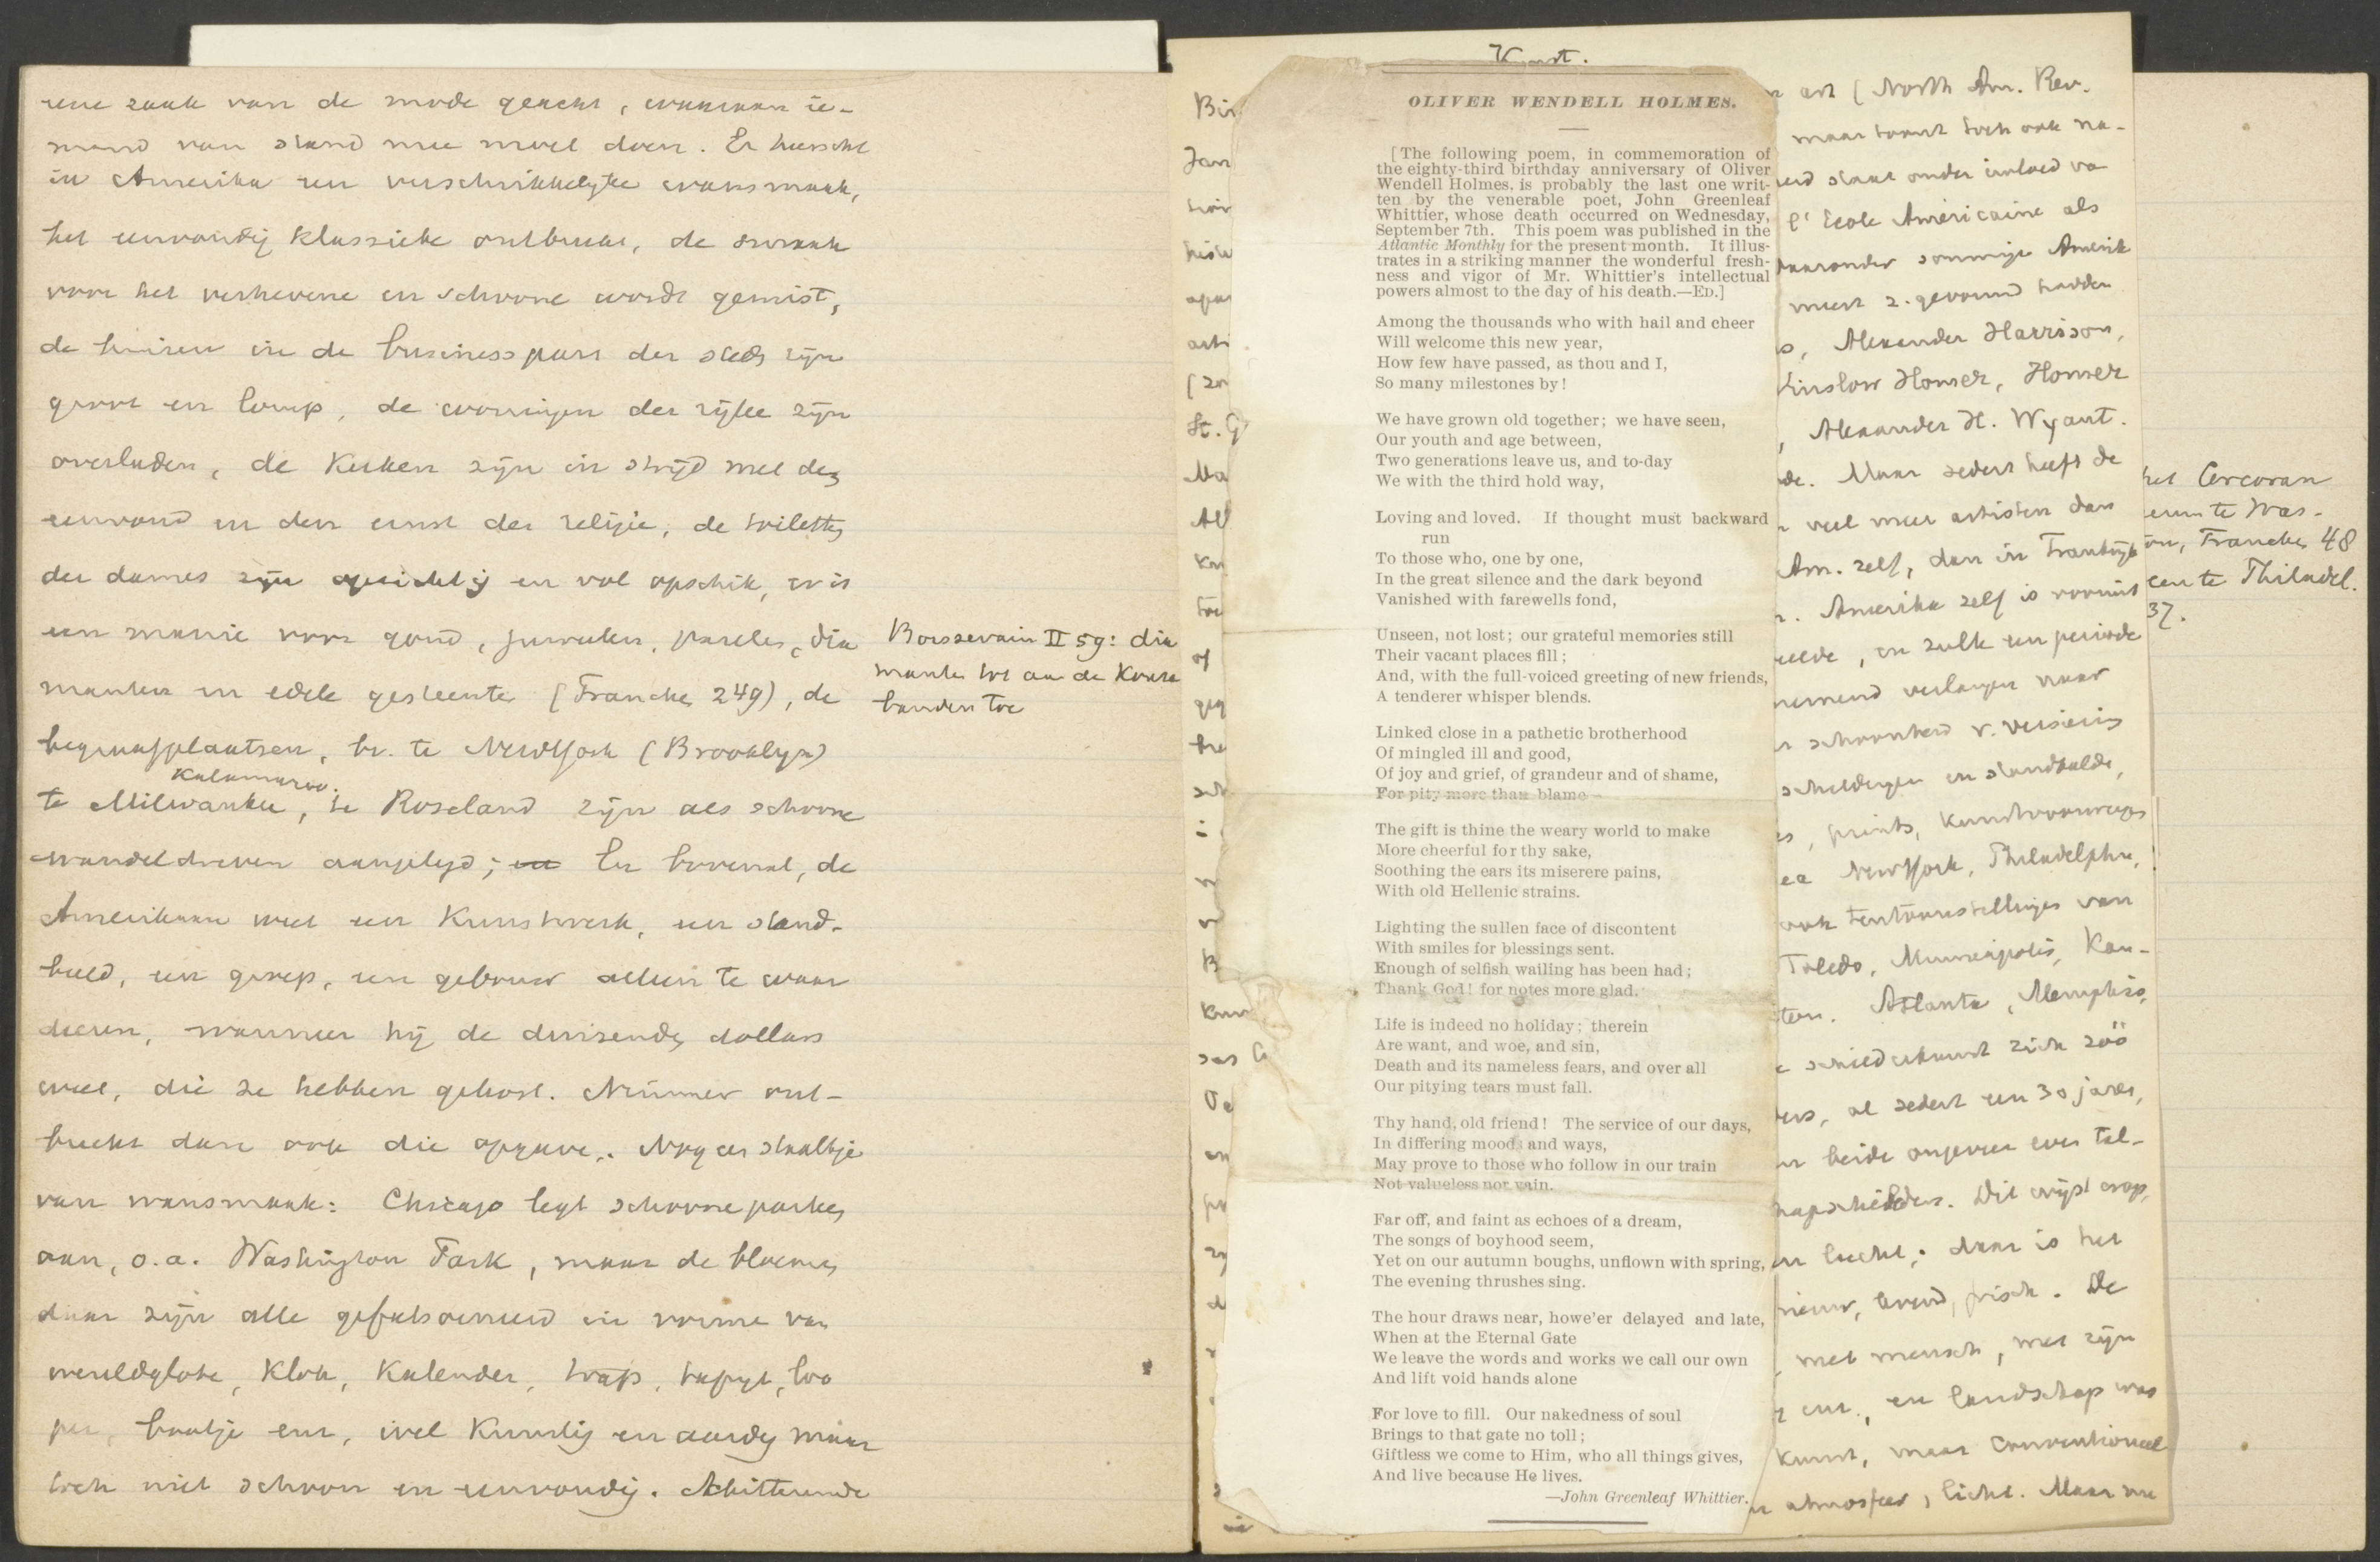 eene zaak van de mode geacht, waaraan ie-
mand van stand mee moet doen. Er heerscht
in Amerika een verschrikkelijke wansmaak,
het eenvoudig klassieke ontbreekt, de smaak
voor het verhevene en schoone wordt gemist,
de huizen in de business part der steden zijn
groot en lomp, de woningen der rijken zijn
overladen, de kerken zijn in strijd met den
eenvoud en den ernst der religie, de toiletten
der dames zijn opzichtig en vol opschik, er is
een manie voor goud, juweelen, paarlen, dia
manten en edele gesteenten (Francken 249), de
begraafplaatsen, bv. te NewYork (Brooklyn)
Kalamazoo.
te Milwaukee, te Roseland zijn als schoone
wandeldreven aangelegd; en bovenal, de
Amerikaan weet een kunstwerk, een stand-
beeld, een groep, een gebouw alleen te waar
deeren, wanneer hij de duizenden dollars
weet, die ze hebben gekost. Nimmer ont-
breekt dan ook die opgave. Nog een staaltje
van wansmaak: Chicago legt schoone parken
aan, o.a. Washington Park, maar de bloemen
daar zijn alle gefatsoeneerd in vorme van
wereldglobe, klok, kalender, trap, tapijt,
bootje enz, wel kunstig en aardig maar
toch niet schoon en eenvoudig. Schitterende
Boissevain II 59: dia
manten tot aan de kouse
banden toe
Kunst.
OLIVER WENDELL HOLMES.
[The following poem, in commemoration of
the eighty-third birthday anniversary of Oliver
Wendell Holmes, is probably the last one writ-
ten by the venerable poet, John Greenleaf
Whittier, whose death occurred on Wednesday,
September 7th. This poem was published in the
Atlantic Monthly for the present month. It illus-
trates in a striking manner the wonderful fresh-
ness and vigor of Mr. Whittier's intellectual
powers almost to the day of his death.—ED.]
Among the thousands who with hail and cheer
Will welcome this new year,
How few have passed, as thou and I,
So many milestones by!
We have grown old together; we have seen,
Our youth and age between,
Two generations leave us, and to-day
We with the third hold way,
Loving and loved. If thought must backward
run
To those who, one by one,
In the great silence and the dark beyond
Vanished with farewells fond,
Unseen, not lost; our grateful memories still
Their vacant places fill;
And, with the full-voiced greeting of new friends,
A tenderer whisper blends.
Linked close in a pathetic brotherhood
Of mingled ill and good,
Of joy and grief, of grandeur and of shame,
For pity more than blame—
The gift is thine the weary world to make
More cheerful for thy sake,
Soothing the ears its miserere pains,
With old Hellenic strains.
Lighting the sullen face of discontent
With smiles for blessings sent.
Enough of selfish wailing has been had;
Thank God! for notes more glad.
Life is indeed no holiday; therein
Are want, and woe, and sin,
Death and its nameless fears, and over all
Our pitying tears must fall.
Thy hand, old friend! The service of our days,
In differing moods and ways,
May prove to those who follow in our train
Not valueless nor vain.
Far off, and faint as echoes of a dream,
The songs of boyhood seem,
Yet on our autumn boughs, unflown with spring,
The evening thrushes sing.
The hour draws near, howe'er delayed and late,
When at the Eternal Gate
We leave the words and works we call our own
And lift void hands alone
For love to fill. Our nakedness of soul
Brings to that gate no toll;
Giftless we come to Him, who all things gives,
And live because He lives.
—John Greenleaf Whittier.
art (North Am. Rev.
maar komt toch ook na-
staat onder invloed va
l'Ecole Américaine als
waaronder sommige Amerik
meest z. gevormd hadden
Alexander Harrison,
Winslow Homer, Homer
, Alexander H. Wyant.
Maar sedert heeft de
veel meer artisten dan
Am. zelf, dan in Frankrijk
. Amerika zelf is vooruit
, en zulk een periode
verlangen naar
schoonheid v. versiering
schilderijen en standbeelde,
prints, kunstvoorwerpen
NewYork, Philadelphia,
ook tentoonstellingen van
Toledo, Minneapolis, Kan-
Atlanta, Memphis,
schilderkunst zich zóó
, al sedert een 30 jaren,
beide ongeveer even tal-
Dit wijst erop,
lucht; daar is het
nieuw, levend, frisch. De
met mensch, met zijn
enz., en landschap was
kunst, maar conventioneel
atmosfeer, licht. Maar nu
het Corcoran
te Was-
Francken 48
te Philadel.
37.